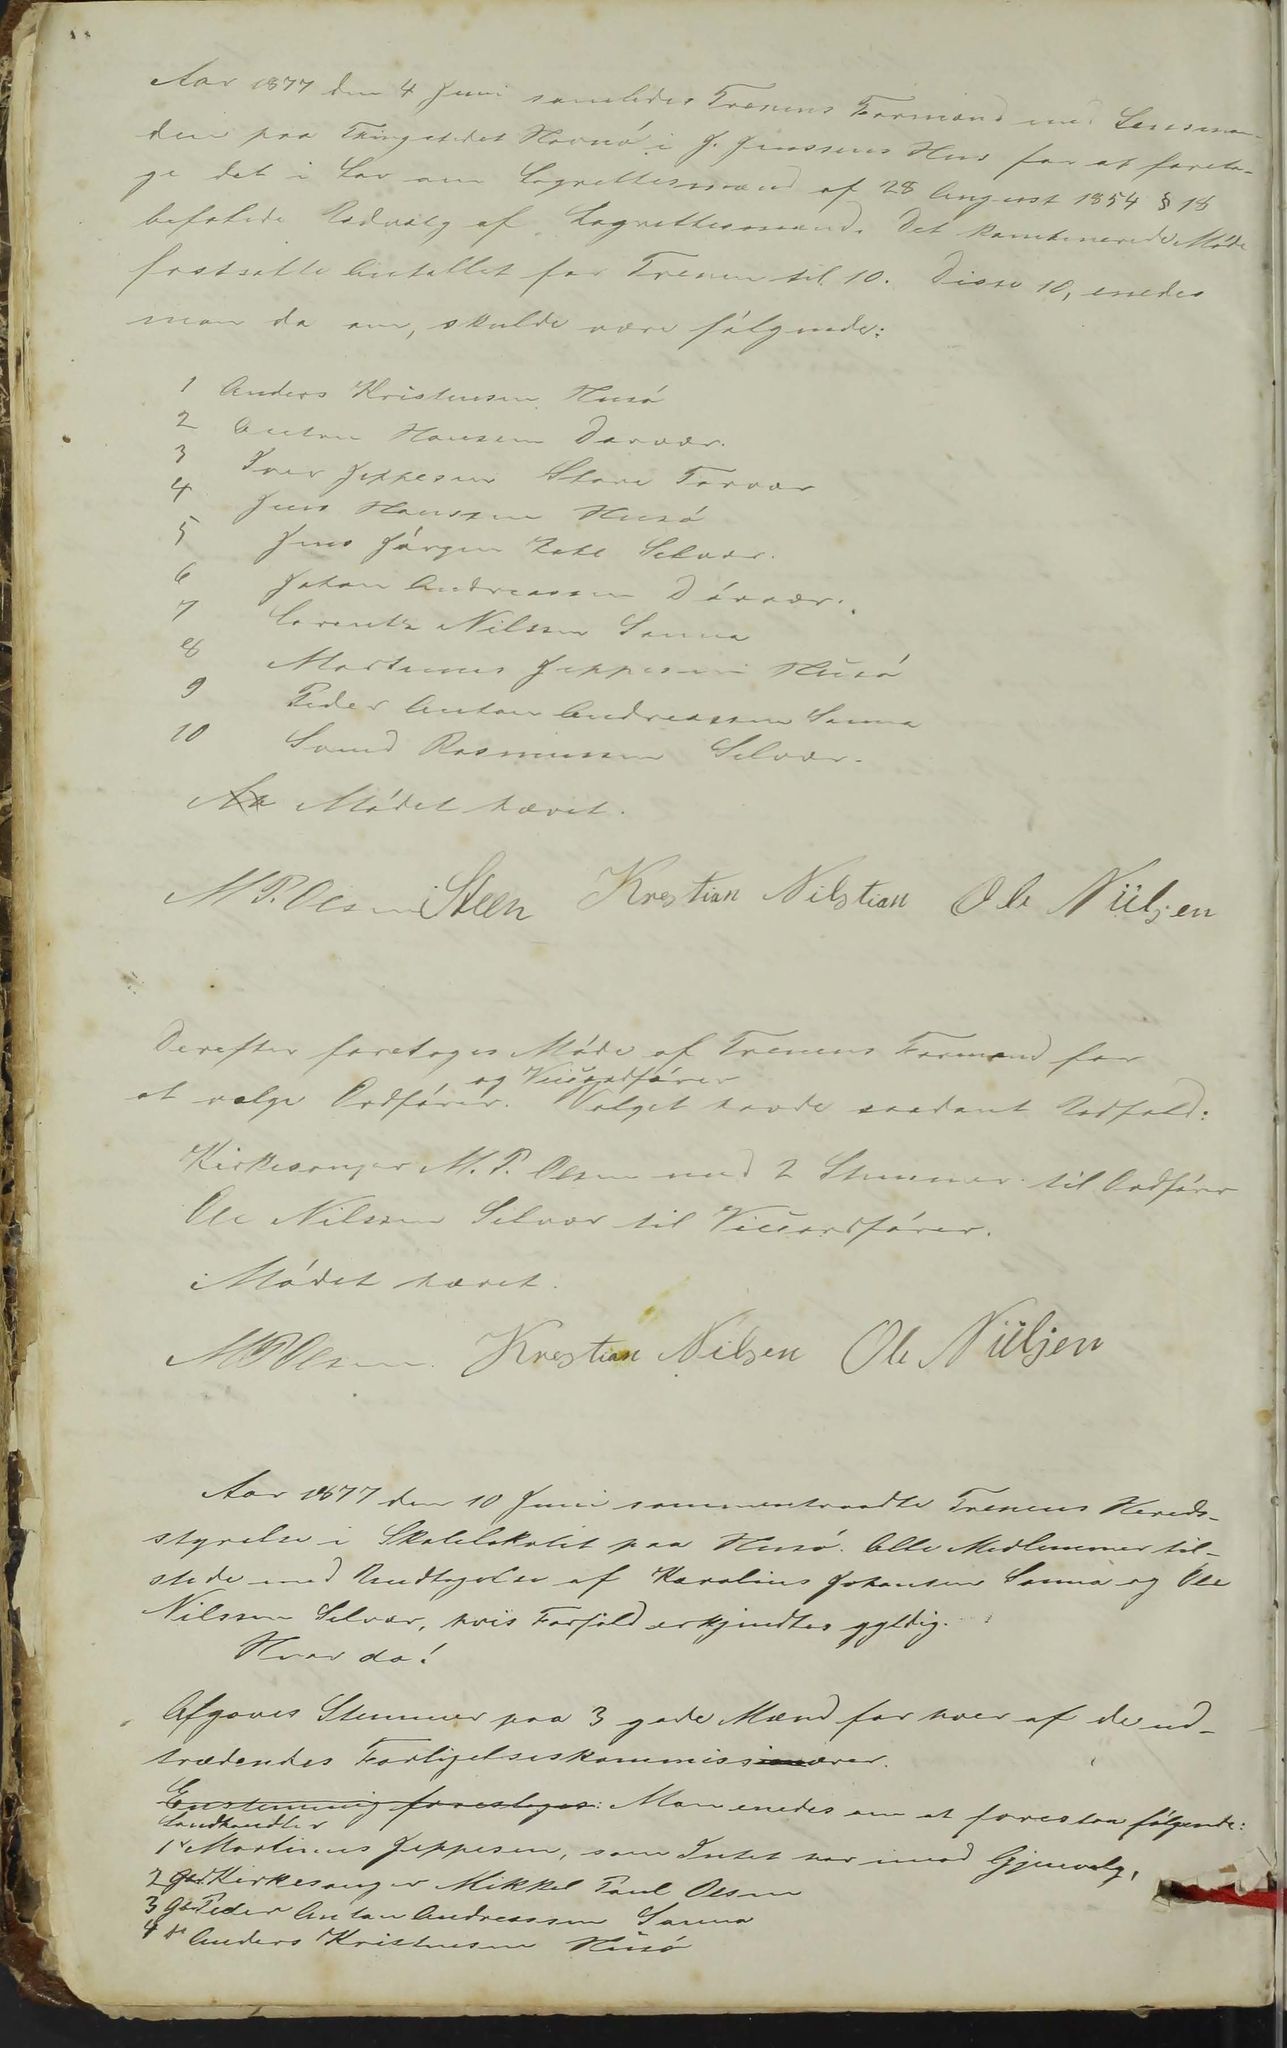 Aar 1877 den 4 Juni samledes Trænens Formænd med Lensman-
den paa Thingstedet Havnö i J. Jenssens Hus for at foreta-
ge det i Lov om Lagrettesmænd af 28 August 1854 § 18
befalede Udvalg af Lagrettesmænd. Det kombinerede Möde
fastsatte Antallet for Trænen til 10. Disse 10, enedes
man da om, skulde være fölgende:
1 Anders Kristensen Husö
2 Anton Hansen Dørvær.
3 Iver Jeppesen Store Torvær
4 Jens Hanssen Husö
5 Jens Jörgen Zahl Selvær.
6 Johan Andreassen Dörvær.
7 Lorentz Nilssen Sanna
8 Martinus Jeppesen Husö
9 Peder Anton Andreassen Sanna
10 Svend Rasmussen Selvær.
Mödet hævet.
M P. Olsen Steen Krestian Nilstian Ole Nüljen
Derefter foretoges Möde af Trænens Formænd for
og Viceordförer
at vælge Ordförer. Valget havde saadant Udfald:
Kirkesanger M. P. Olsen med 2 Stemmer til Ordförer
Ole Nilssen Selvær til Viceordförer.
Mödet hævet.
M P Olsen. Krestian Nilsen Ole Nüljen
Aar 1877 den 10 Juni sammentraadte Trænens Hereds-
styrelse i Skolelokalet paa Husö. Alle Medlemmer til-
stede med Undtagelse af Karolius Johansen Sanna og Ole
Nilssen Selvær, hvis Forfald erkjendtes gyldig.
Hvor da!
Afgaves Stemmer paa 3 gode Mænd for hver af de ud-
trædendes Forligelseskommissærer.
Enstemmig foresloges: Man enedes om at foreslaa fölgende:
Landhandler
1 Martinus Jeppesen, som Intet har imod Gjenvalg,
2 Kirkesanger Mikkel Paul Olsen
3 Peder Anton Andreassen Sanna
4 Anders Kristensen Husö